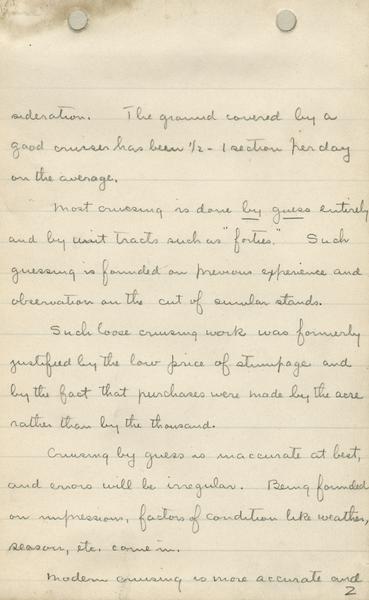 sideration. The ground covered by a
good cruiser has been 1/2 - 1 section per day
on the average.
Most cruising is done by guess entirely
and by unit tracts such as "forties." Such
guessing is founded on previous experience and
observation on the cut of similar stands.
Such loose cruising work was formerly
justified by the low price of stumpage and
by the fact that purchases were made by the acre
rather than by the thousand.
Cruising by guess is inaccurate at best,
and errors will be irregular. Being founded
on impressions, factors of condition like weather,
season, etc. come in.
Modern cruising is more accurate and
2